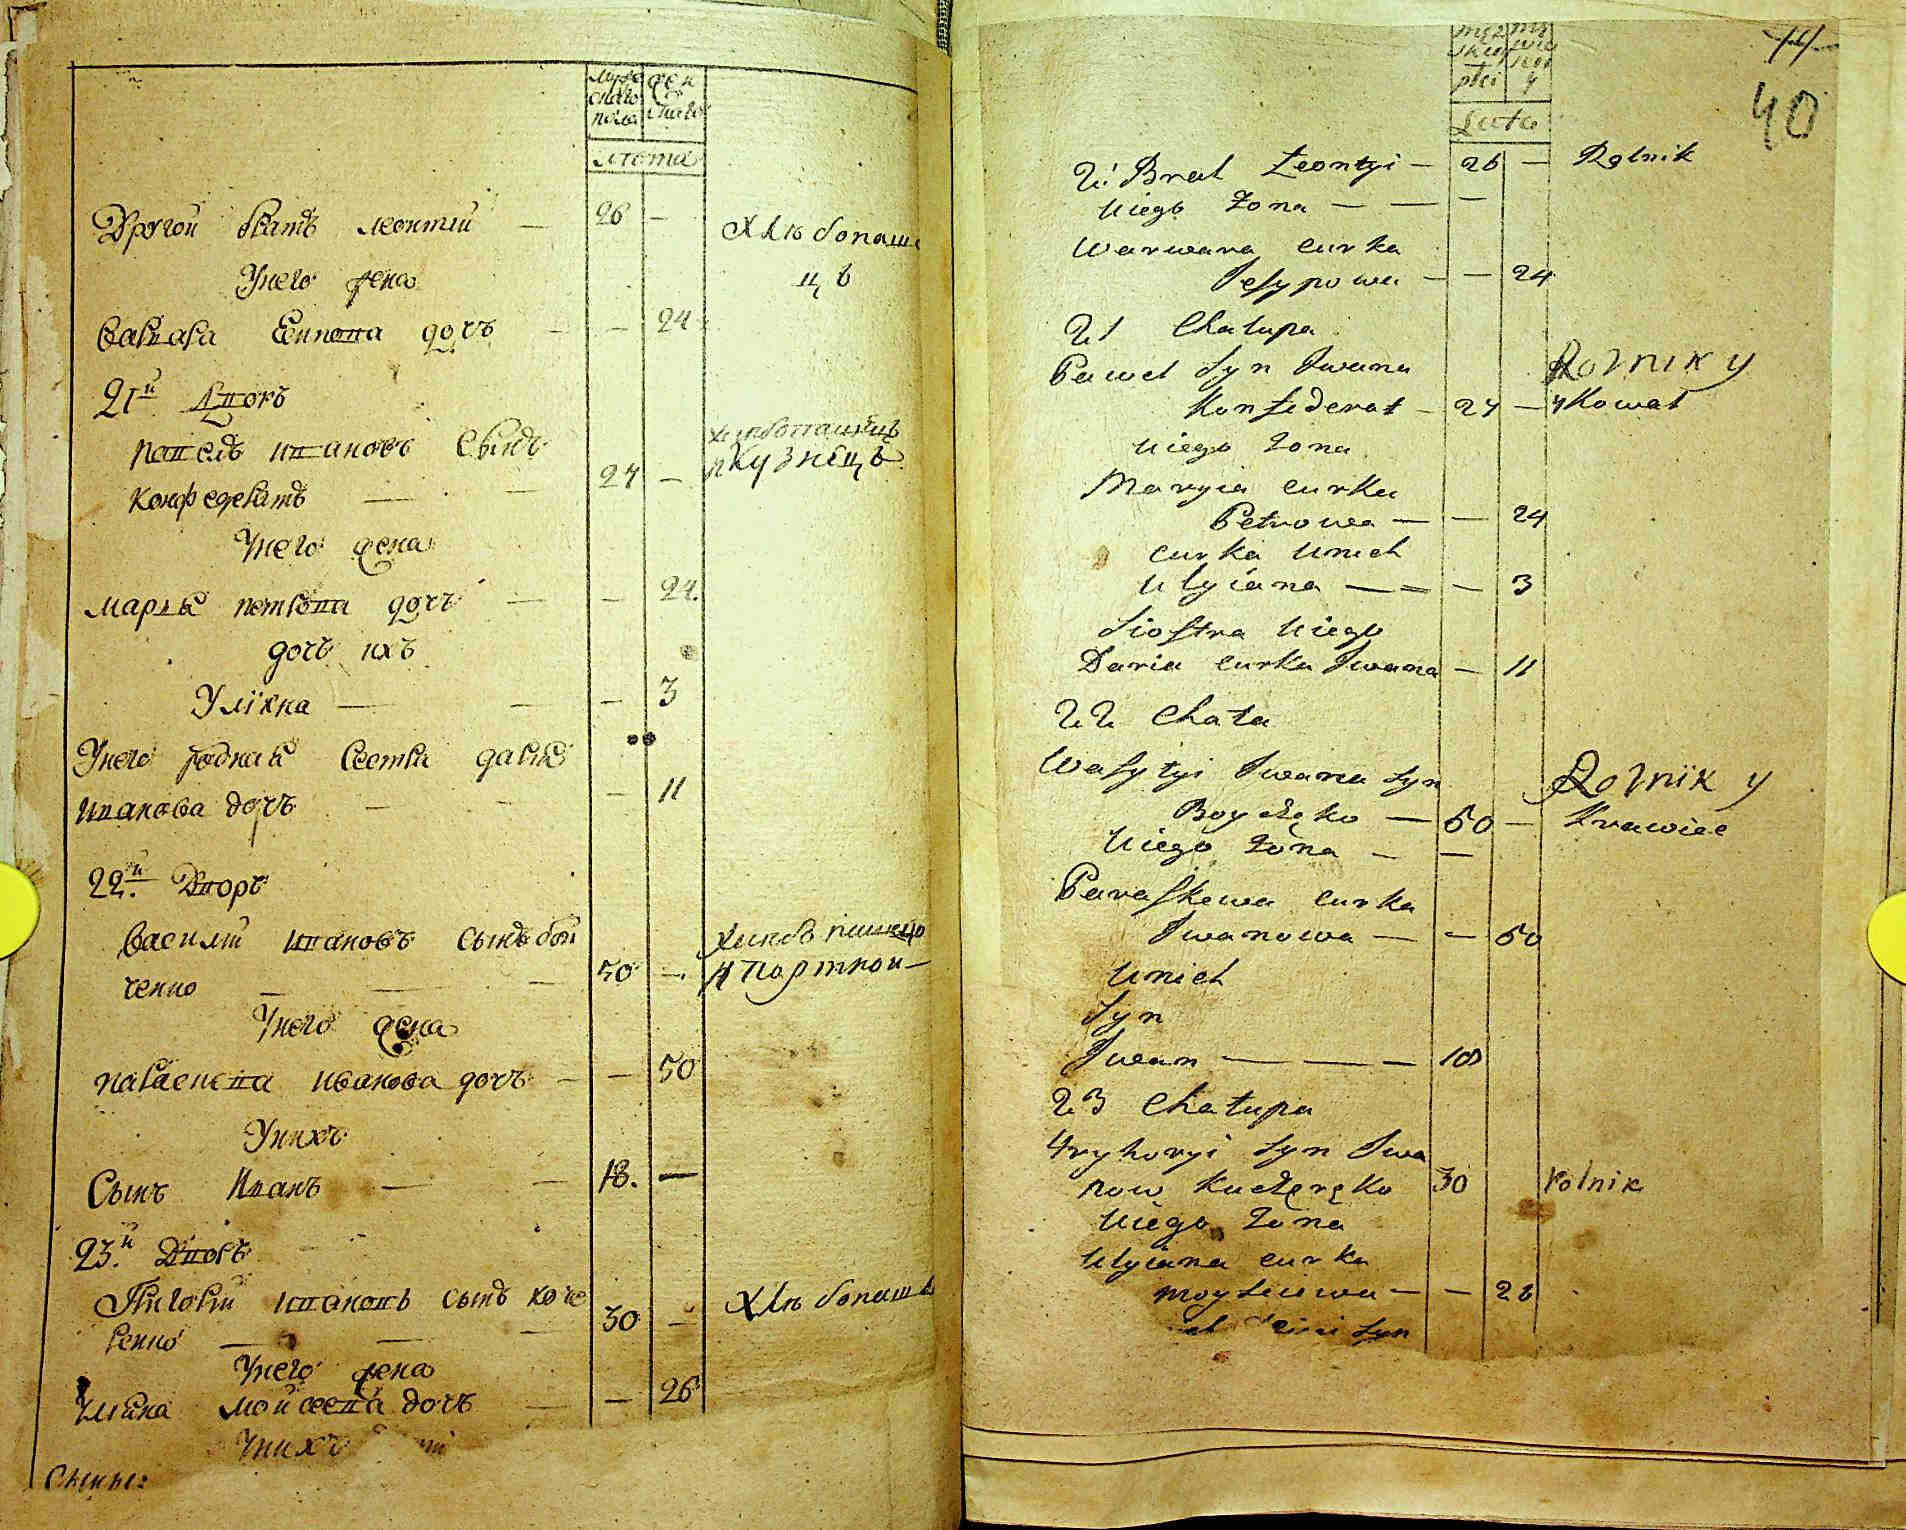 мужескаго пола
женскаго
Лѣта
Другой братъ леонтий — 26 —
хлѣбопаше
цъ
Унего жена
варвара Есипова дочъ — — 24
21й Дворъ
павелъ ивановъ сынъ
хлѣбопашецъ
конфедератъ — — 27 — и кузнецъ
Унего жена
марья петрова дочъ — — 24.
дочъ ихъ
Улiяна — — — 3
Унего родная сестра дарья
иванова дочъ — — — 11
22.й Дворъ
василий ивановъ сынъ бой
ченко — — — 50 — и портной —
Унего жена
параскева иванова дочъ — — 50
Унихъ
Сынъ Иванъ — — 18. —
23.й Дворъ
Григорий ивановъ сынъ коче
ренко — — — 30 — хлѣбопаше
Унего жена
улияна мойсеева дочъ — — 26
Унихъ
Сыны:
40
Lata
2i Brat Leontyi — 26 — Rolnik
Uiego Zona — — —
Warwara curka
Jesypowa — — 24
21 Chalupa
Pawel Syn Iwana Rolnik y
Konfederat — 27 — y Kowal
Uiego Zona
Maryia curka
Petrowa — — 24
curka Unich
Ulyiana — — — 3
Siostra Uiego
Daria curka Iwana — 11
22 Chata
Wasylyi Iwana syn Rolnik y
Boyczęko — 50 — Krawiec
Uiego Żona — —
Paraskewa curka
Iwanowa — — 50
Unich
Syn
Iwan — — — 18
23 Chałupa
Hryhoryi Syn Iwa
now Kuczeręko 30 rolnik
Uiego Żona
Ulyiana curka
Moysiiewa — — 26
syn